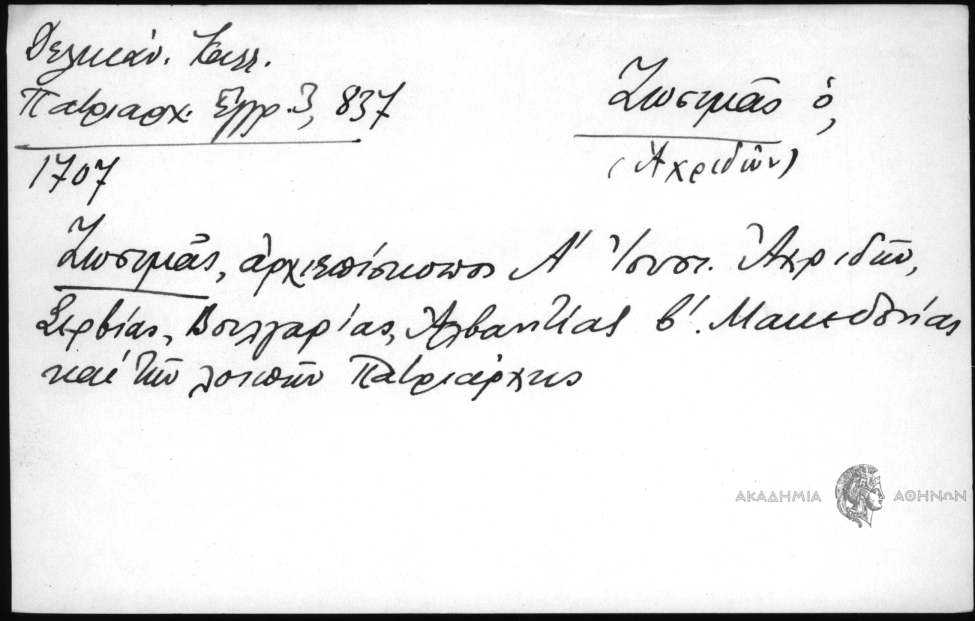 Δελικάν. Καλλ.
Πατριαρχ. Ἔγγρ. 3, 837
1707
Ζωσιμᾶς ὁ,
(Ἀχριδῶν)
Ζωσιμᾶς, ἀρχιεπίσκοπος Α' Ἰουστ. Ἀχριδῶν,
Σερβίας, Βουλγαρίας, Ἀλβανιτίας β'. Μακεδονίας
καί τῶν λοιπῶν Πατριάρχης
ΑΚΑΔΗΜΙΑ ΑΘΗΝΩΝ